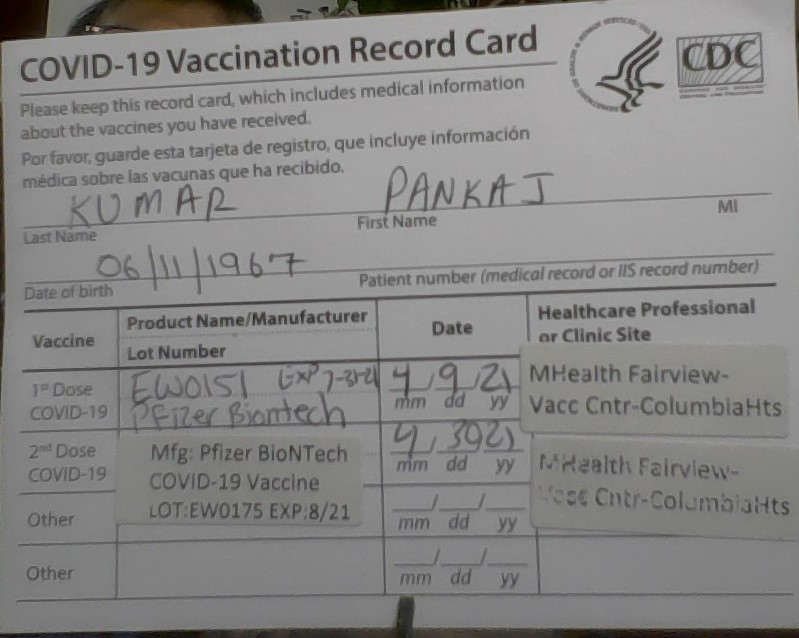 COVID-19 Vaccination Record Card
CDC
Please keep this record card, which includes medical information
about the vaccines you have received.
Por favor, guarde esta tarjeta de registro, que incluye información
médica sobre las vacunas que ha recibido.
KUMAR PANKAJ
Last Name First Name MI
06/11/1967
Date of birth Patient number (medical record or IIS record number)
Vaccine
Product Name/Manufacturer
Lot Number
Date
Healthcare Professional
or Clinic Site
1st Dose
COVID-19
EW0151 EXP 7-31-21
Pfizer Biontech
4/9/21
mm dd yy
MHealth Fairview-
Vacc Cntr-ColumbiaHts
2nd Dose
COVID-19
Mfg: Pfizer BioNTech
COVID-19 Vaccine
LOT:EW0175 EXP:8/21
4/30/21
mm dd yy
MHealth Fairview-
Vacc Cntr-ColumbiaHts
Other
mm dd yy
Other
mm dd yy